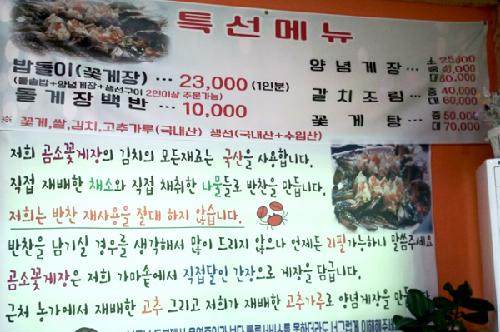 특선메뉴
밥돌이(꽃게장) ··· 23,000 (1인분)
(돌솥밥+양념게장+생선구이 2인이상 주문가능)
돌게장백반 ··· 10,000
양념게장 ··· 소 25,000
대 60,000
갈치조림 ··· 중 40,000
대 60,000
꽃게탕 ··· 중 50,000
대 70,000
꽃게,쌀,김치,고추가루(국내산) 생선(국내산+수입산)
저희 곰소꽃게장의 김치의 모든재료는 국산을 사용합니다.
직접 재배한 채소와 직접 채취한 나물들로 반찬을 만듭니다.
저희는 반찬 재사용을 절대 하지 않습니다.
반찬을 남기실 경우를 생각해서 많이 드리지 않으나 언제든 리필가능하니 말씀주세요
곰소꽃게장은 저희 가마솥에서 직접달인 간장으로 게장을 담급니다.
근처 농가에서 재배한 고추 그리고 저희가 재배한 고추가루로 양념게장을